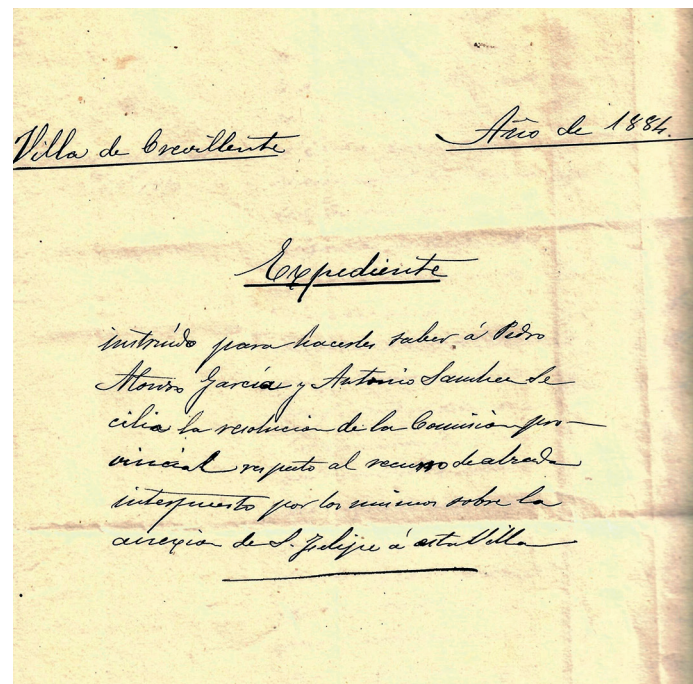 Villa de Crevillente
Año de 1884.
Expediente
instruído para hacerles saber á Pedro
Alonso García y Antonio Sanchez Se
cilia la resolucion de la Comisión pro-
vincial respeto al recurso de alzada
interpuesto por los mismos sobre la
anexion de S. Felipe á esta Villa